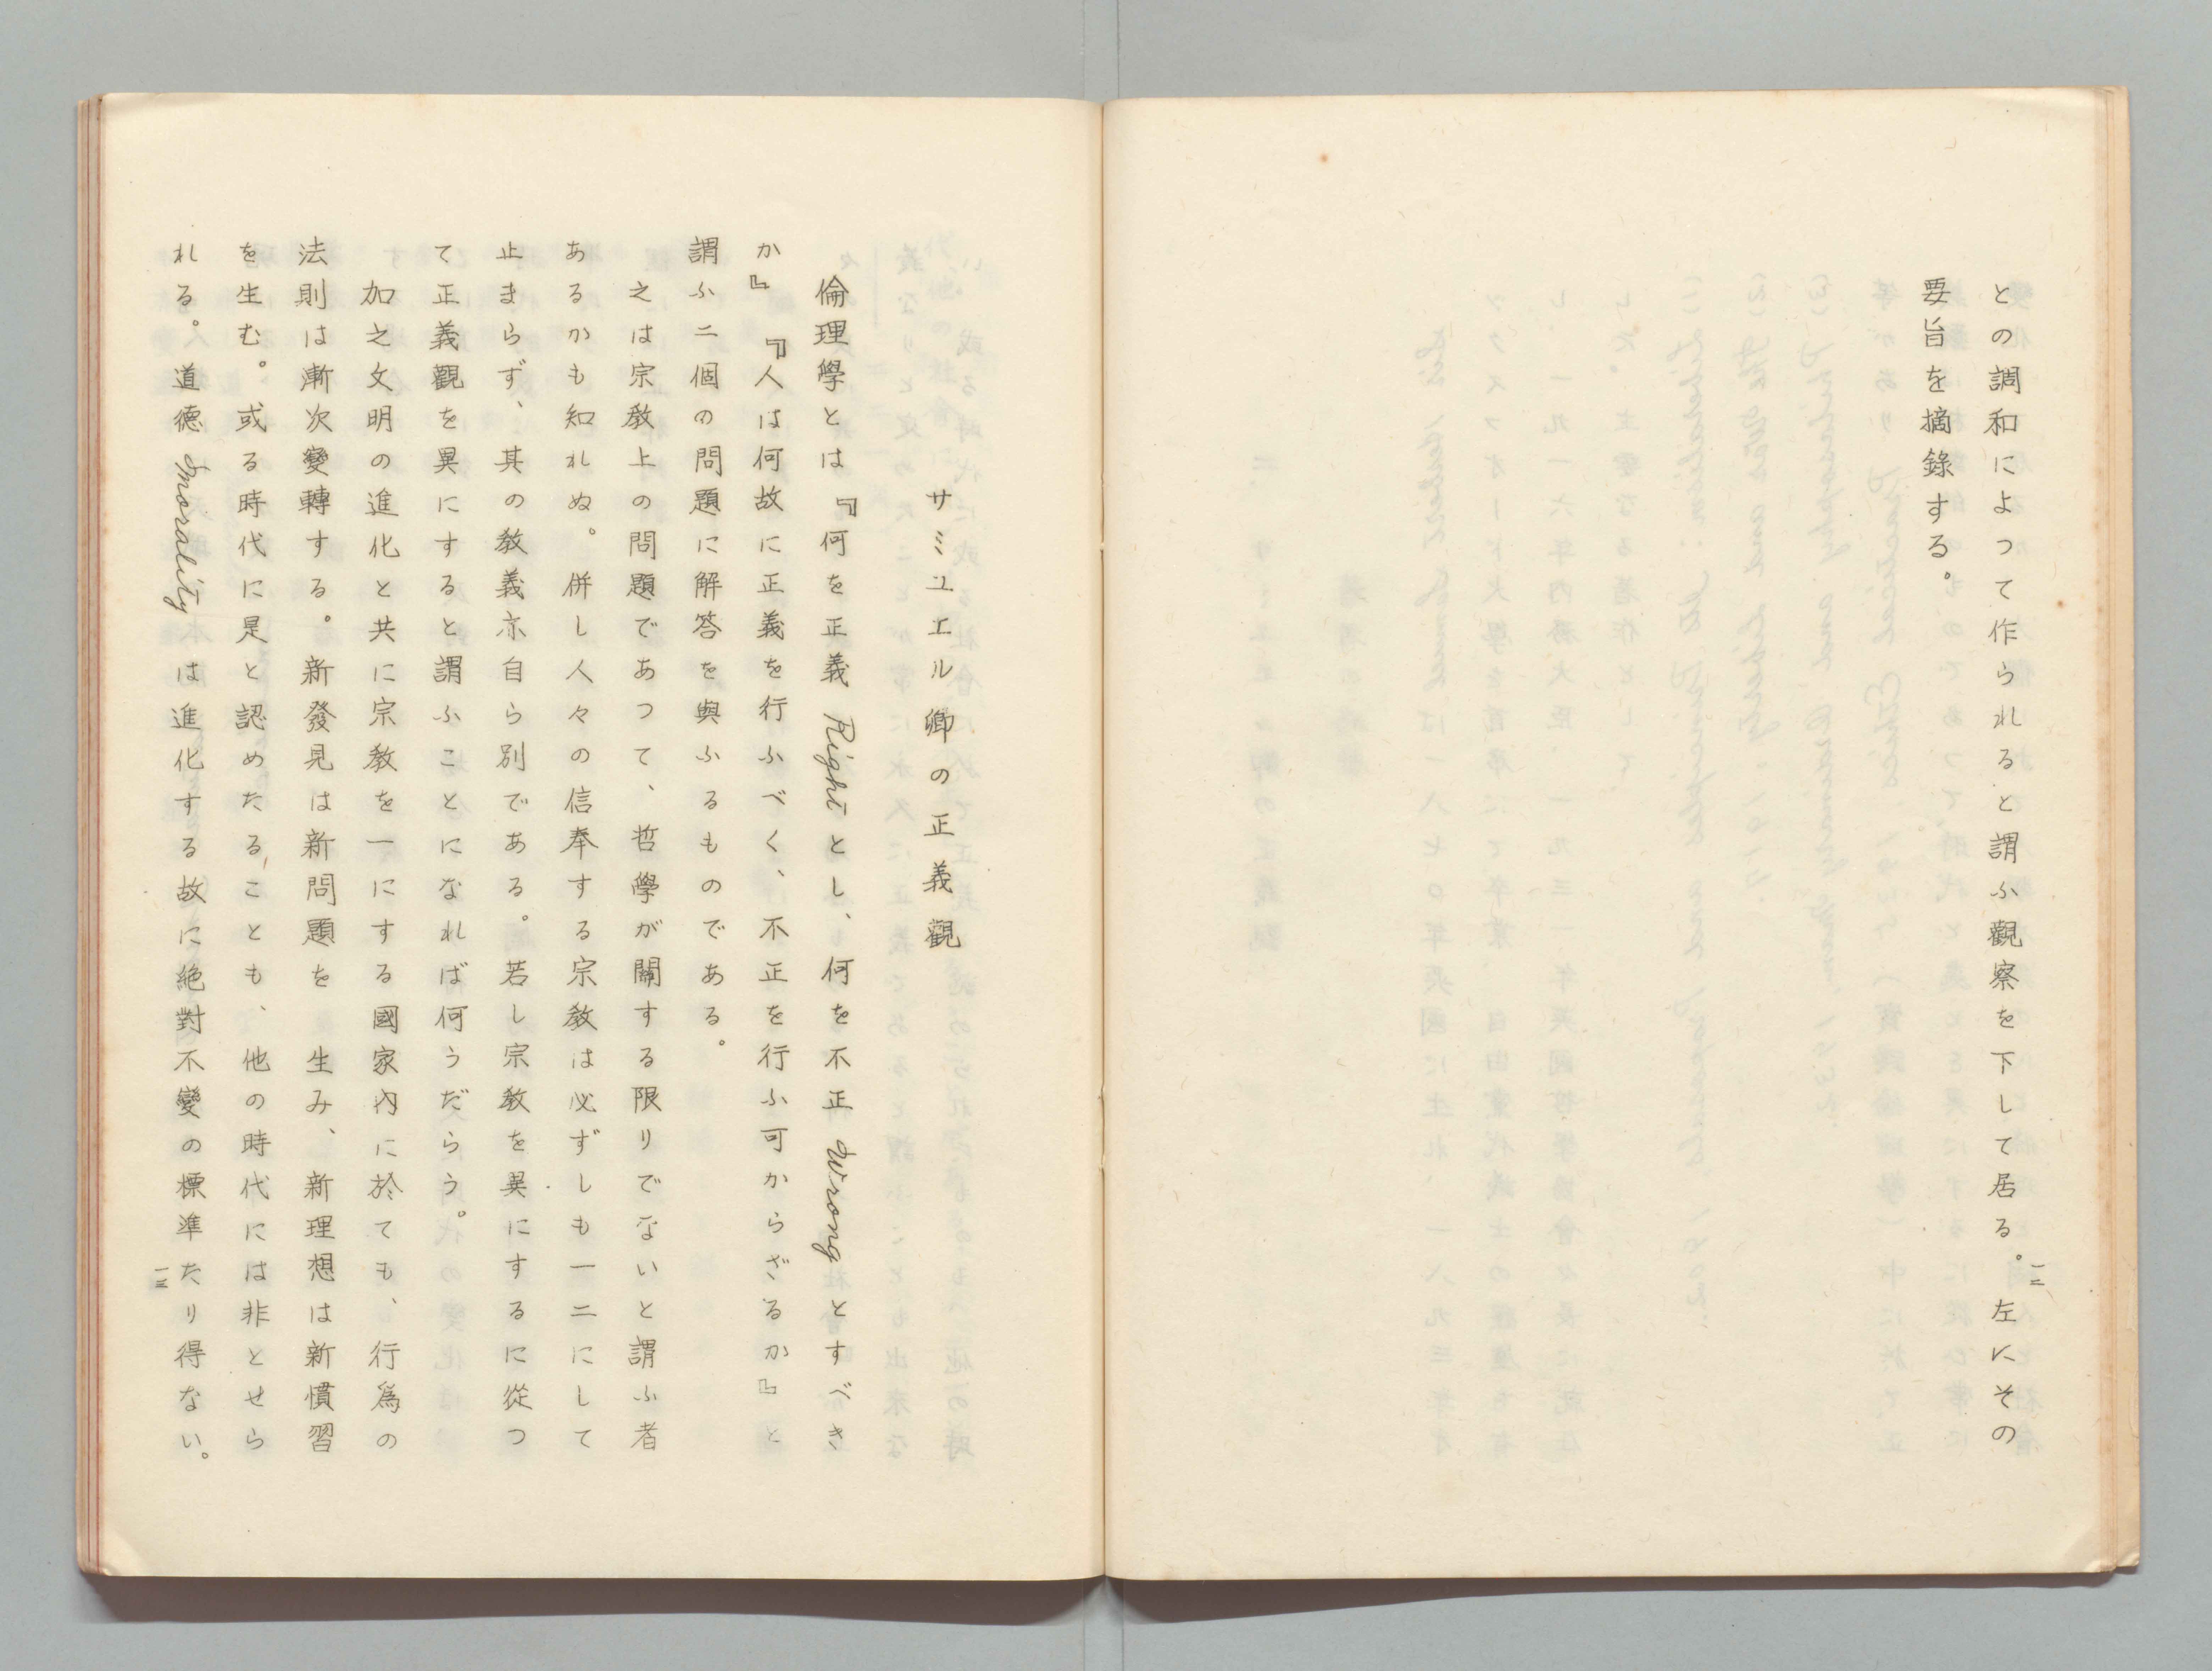 との調和によつて作られると謂ふ觀察を下して居る。左にその
要旨を摘錄する。
一二
サミユエル卿の正義觀
倫理學とは『何を正義Rightとし、何を不正Wrongとすべき
か』『人は何故に正義を行ふべく、不正を行ふ可からざるか』と
謂ふ二個の問題に解答を與ふるものである。
之は宗敎上の問題であつて、哲學が關する限りでないと謂ふ者
あるかも知れぬ。併し人々の信奉する宗敎は必ずしも一二にして
止まらず、其の敎義亦自ら別である。若し宗敎を異にするに從つ
て正義觀を異にすると謂ふことになれば何うだらう。
加之文明の進化と共に宗敎を一にする國家內に於ても、行爲の
法則は漸次變轉する。新發見は新問題を生み、新理想は新慣習
を生む。或る時代に是と認めたることも、他の時代には非とせら
れる。道德moralityは進化する故に絶對不變の標準たり得ない。
一三